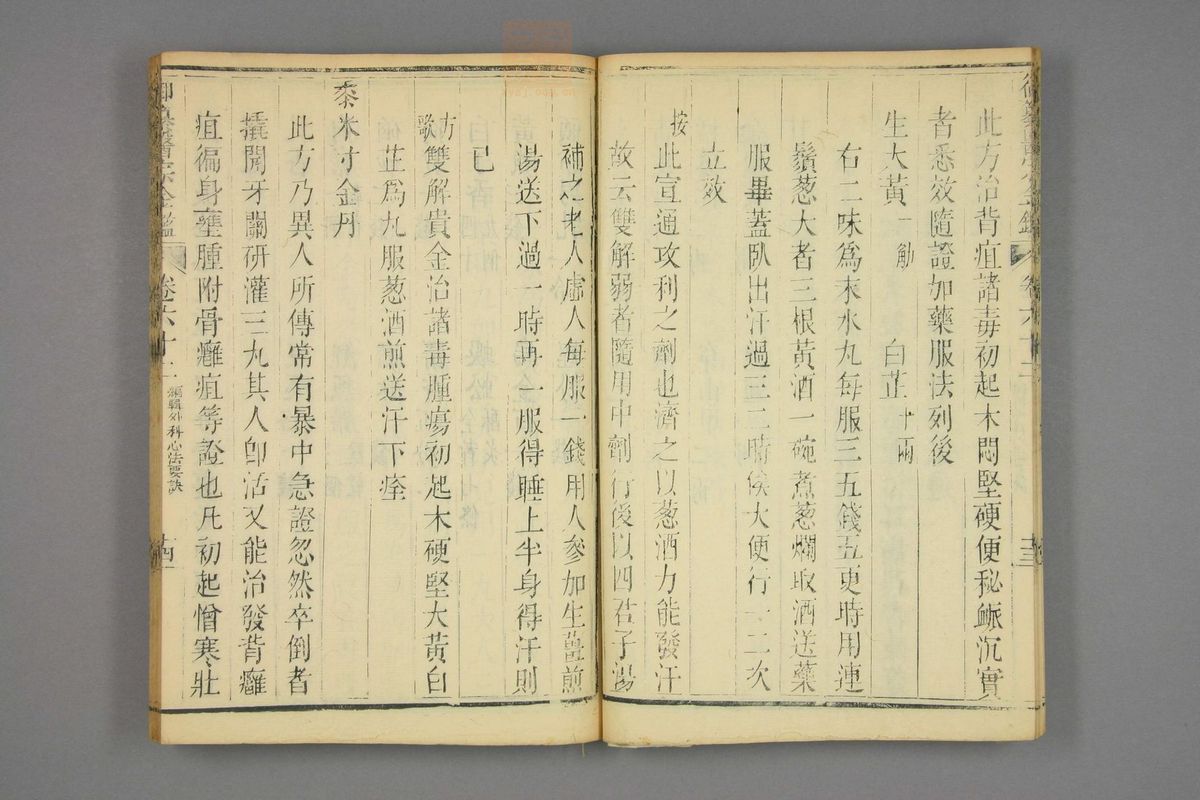 此方治背疽諸毒初起木悶堅硬便秘脈沉實
者悉效隨證加藥服法列後
生大黃一觔 白芷十兩
右二味爲末水丸每服三五錢五更時用連
鬚葱大者三根黃酒一碗煮葱爛取酒送藥
服畢蓋臥出汗過三二時俟大便行一二次
立效
按此宣通攻利之劑也濟之以葱酒力能發汗
故云雙解弱者隨用中劑行後以四君子湯
補之老人虛人每服一錢用人參加生薑煎
湯送下過一時再一服得睡上半身得汗則
已
方歌雙解貴金治諸毒腫瘍初起木硬堅大黃白
芷爲丸服葱酒煎送汗下痊
黍米寸金丹
此方乃異人所傳常有暴中急證忽然卒倒者
撬開牙關研灌三丸其人卽活又能治發背癰
疽徧身壅腫附骨癰疽等證也凡初起憎寒壯
御纂醫宗金鑑 卷六十二 編輯外科心法要訣 十四